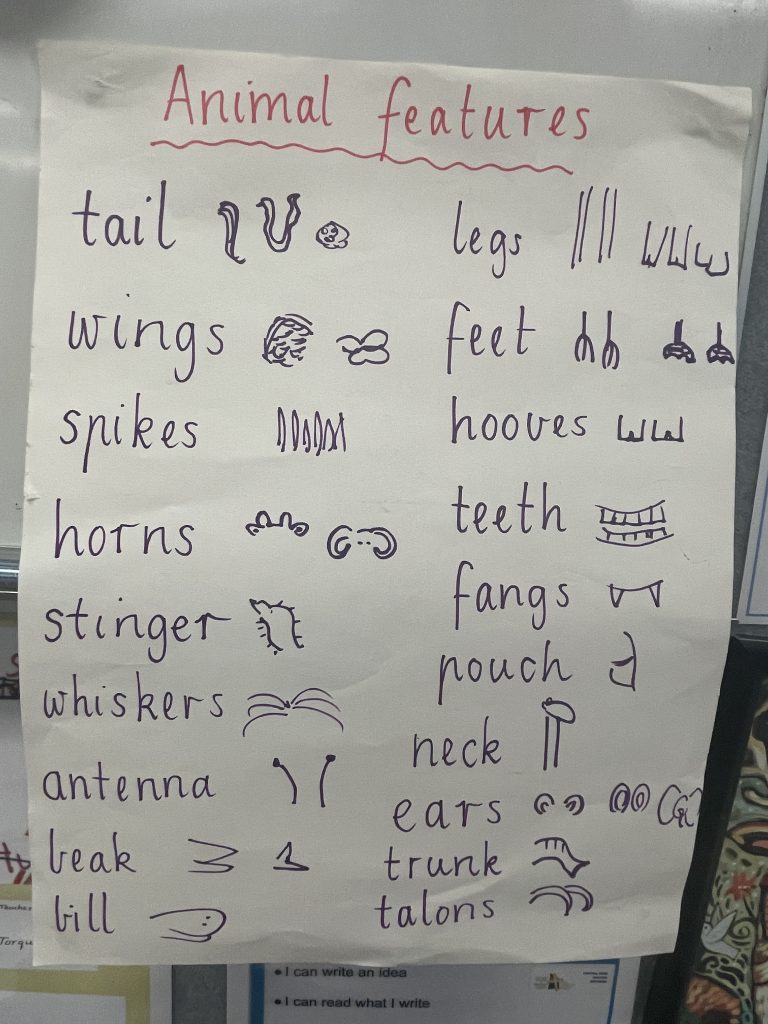 Animal features
tail
wings
spikes
horns
stinger
whiskers
antenna
beak
bill
legs
feet
hooves
teeth
fangs
pouch
neck
ears
trunk
talons
Torqu
• I can write an idea
• I can read what I write